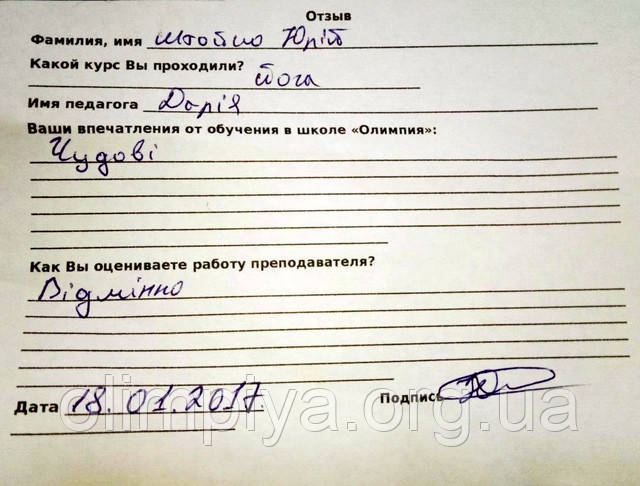 Отзыв
Фамилия, имя Штойко Юрій
Какой курс Вы проходили?
Йога
Имя педагога Дарія
Ваши впечатления от обучения в школе «Олимпия»:
Чудові
Как Вы оцениваете работу преподавателя?
Відмінно
Дата 18.01.2017 Подпись
olimpiya.org.ua